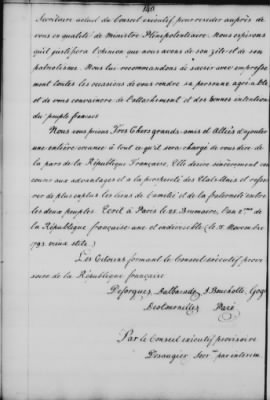 140
Secrétaire actuel du Conseil exécutif pour résider auprès de
vous en qualité de Ministre Plénipotentiaire. Nous espérons
qu'il justifiera l'opinion que nous avons de son zèle et de son
patriotisme. Nous lui recommandons de saisir avec empressement
toutes les occasions de vous rendre sa personne agréable
et de vous convaincre de l'attachement et des bonnes intentions
du peuple français
Nous vous prions, Très Chers grands amis et Alliés d'ajouter
une entière créance à tout ce qu'il sera chargé de vous dire de
la part de la République Française. Elle désire sincèrement
aux avantages et à la prospérité des Etats-Unis et
de plus en plus les liens de l'amitié et de la fraternité entre
les deux peuples. Ecrit à Paris le 25 Brumaire, l'an 2.me de
la République française une et indivisible (le 15 Novembre
1793 vieux stile)
Les Citoyens formant le Conseil exécutif provisoire
de la République française
Deforgues, Dalbarade, J. Bouchotte, Gog
Destournelles Paré
Par le Conseil exécutif provisoire
Desaugier Secr. par interim